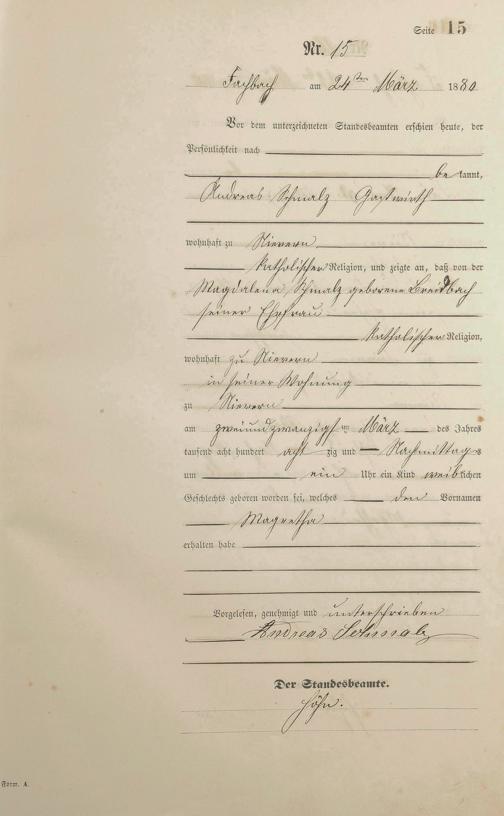 Seite 15
Nr. 15
Fachbach am 24ten März 1880
Vor dem unterzeichneten Standesbeamten erschien heute, der
Persönlichkeit nach
be kannt,
Andreas Schmalz Gastwirth
wohnhaft zu Nievern
katholischer Religion, und zeigte an, daß von der
Magdalena Schmalz geborene Breidbach
seiner Ehefrau
katholischer Religion,
wohnhaft zu Nievern
in seiner Wohnung
zu Nievern
am zweiundzwanzigsten März des Jahres
tausend acht hundert acht zig und Nachmittags
um ein Uhr ein Kind weiblichen
Geschlechts geboren worden sei, welches den Vornamen
Magretha
erhalten habe
Vorgelesen, genehmigt und unterschrieben
Andreas Schmalz
Der Standesbeamte.
Höhn.
Form. A.